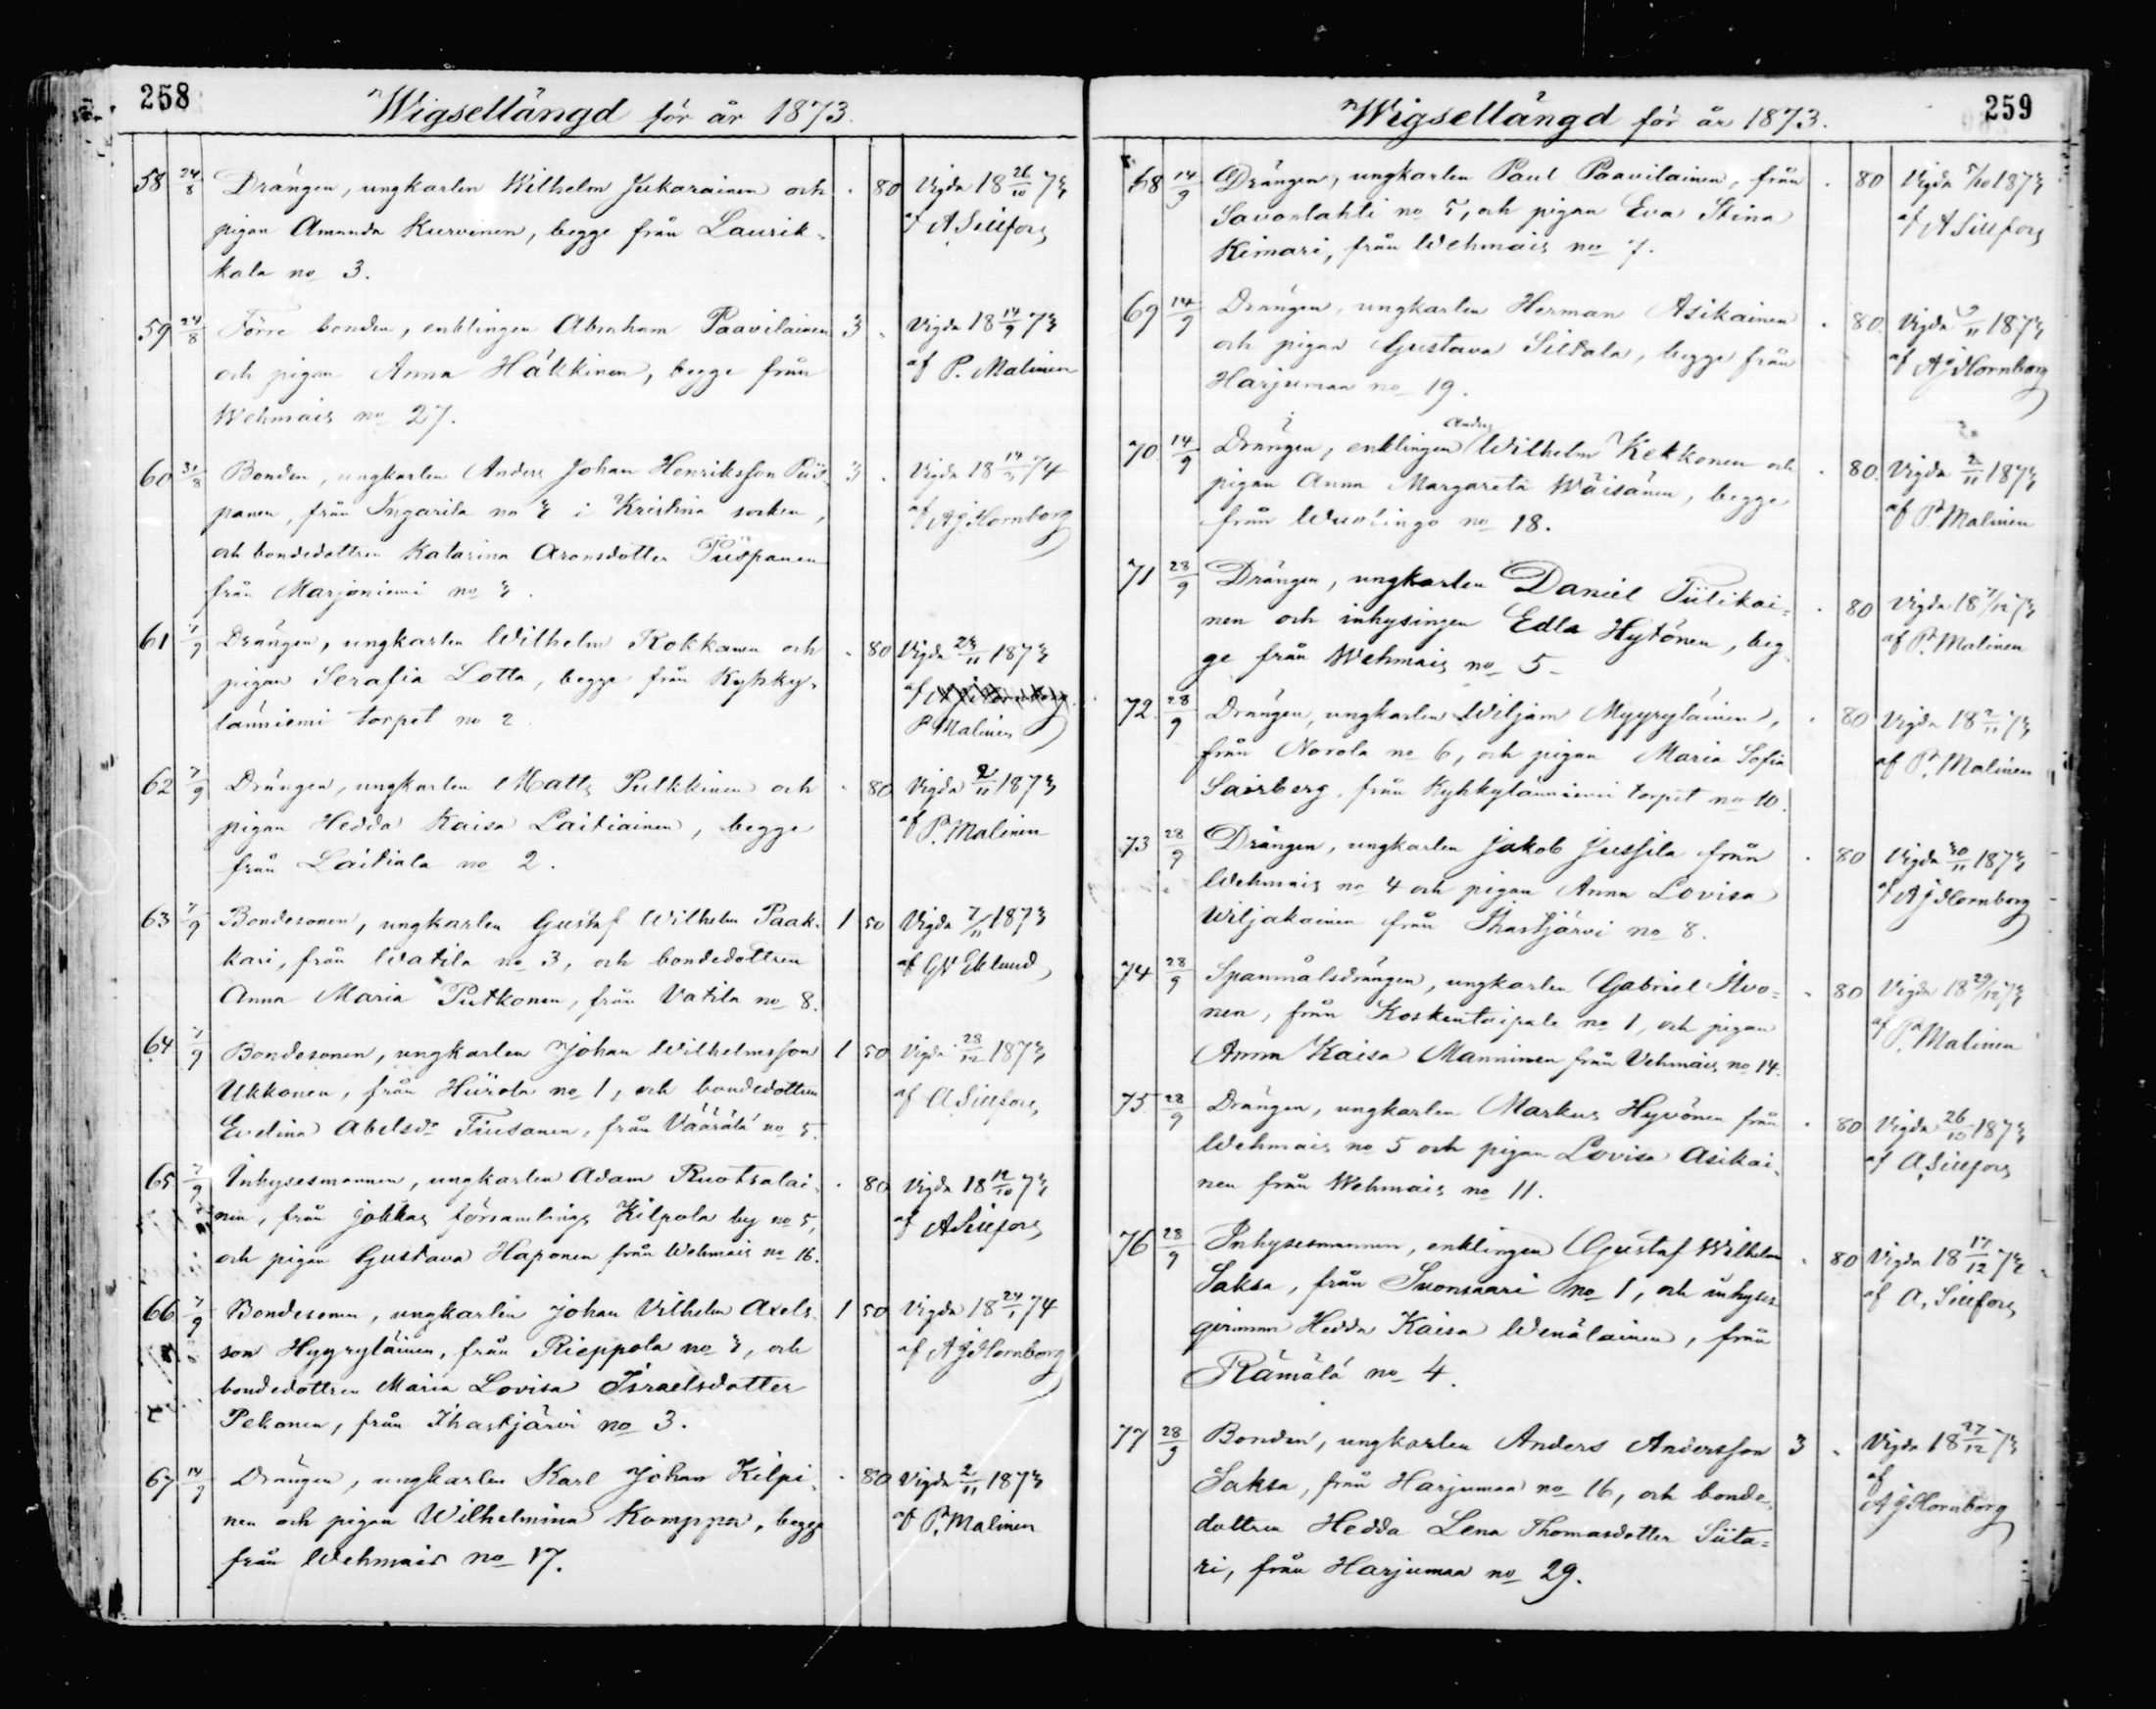 258
Wigsellängd för år 1873.
58 24/8 Drängen, ungkarlen Wilhelm Jukarainen och . 80 Vigda 18 26/10 73
pigan Amanda Kurvonen, begge från Laurik- af A Sirefors
kala no 3.
59 24/8 Förre bonden, enklingen Abraham Paavilainen 3 . Vigda 18 14/9 73
och pigan Anna Häkkinen, begge från af P. Malinen
Wehmais no 27.
60 31/8 Bonden, ungkarlen Anders Johan Henriksson Piis- 3 . Vigda 18 74
panen, från Ingarila no 3 i Kristina socken, af A J Hornborg
och bondedottren Katarina Aronsdotter Piispanen
från Marjoniemi no 3.
61 7/9 Drängen, ungkarlen Wilhelm Rokkanen och . 80 Vigda 23/11 1873
pigan Serafia Lotta, begge från Kyhky- af
länniemi torpet no 2 P Malinen
62 7/9 Drängen, ungkarlen Matts Pulkkinen och . 80 Vigda 2/11 1873
pigan Hedda Kaisa Laitiainen, begge af P. Malinen
från Laitiala no 2.
63 7/9 Bondesonen, ungkarlen Gustaf Wilhelm Paak- 1 50 Vigda 7/11 1873
kari, från Watila no 3, och bondedottren af G W Eklund
Anna Maria Putkonen, från Vatila no 8.
64 7/9 Bondesonen, ungkarlen Johan Wilhelmsson 1 50 Vigda 28/12 1873
Ukkonen, från Hiirola no 1, och bondedottren af A Sirefors
Evelina Abelsdr Tiusanen, från Väärälä no 5.
65 7/9 Inhysesmannen, ungkarlen Adam Ruotsalai- . 80 Vigda 18 12/10 73
nen, från Jokkas församlings Kilpola by no 5, af A Sirefors
och pigan Gustava Haponen från Wehmais no 16.
66 7/9 Bondesonen, ungkarlen Johan Vilhelm Axels- 1 50 Vigda 18 24/1 74
son Hyyryläinen, från Rieppola no 3, och af A J Hornborg
bondedottren Maria Lovisa Israelsdotter
Pekonen, från Ihastjärvi no 3.
67 14/9 Drängen, ungkarlen Karl Johan Kilpi- . 80 Vigda 2/11 1873
nen och pigan Wilhelmina Komppa, begge af P. Malinen
från Wehmais no 17.
259
Wigsellängd för år 1873.
68 14/9 Drängen, ungkarlen Paul Paavilainen, från . 80 Vigda 5/10 1873
Savonlahti no 5, och pigan Eva Stina af A Sirefors
Kimari, från Wehmais no 7.
69 14/9 Drängen, ungkarlen Herman Asikainen . 80 Vigda 9/11 1873
och pigan Gustava Siltala, begge från af A J Hornborg
Harjumaa no 19.
Anders
70 14/9 Drängen, enklingen Wilhelm Kekkonen och . 80 Vigda 2/11 1873
pigan Anna Margareta Wäisänen, begge af P. Malinen
från Wuolingo no 18.
71 28/9 Drängen, ungkarlen Daniel Tiilikai- . 80 Vigda 18 7/12 73
nen och inhysingen Edla Hytönen, beg- af P. Malinen
ge från Wehmais no 5.
72 28/9 Drängen, ungkarlen Wiljam Myyryläinen, . 80 Vigda 18 2/11 73
från Norola no 6, och pigan Maria Sofia af P. Malinen
Sairberg, från Kyhkylänniemi torpet no 10.
73 28/9 Drängen, ungkarlen Jakob Jussila från . 80 Vigda 30/11 1873
Wehmais no 4 och pigan Anna Lovisa af A J Hornborg
Wiljakainen från Ihastjärvi no 8.
74 28/9 Spanmålsdrängen, ungkarlen Gabriel Ilvo- . 80 Vigda 18 29/12 73
nen, från Koskentaipale no 1, och pigan af P. Malinen
Anna Kaisa Manninen från Vehmais no 14.
75 28/9 Drängen, ungkarlen Markus Hyvönen från . 80 Vigda 26/10 1873
Wehmais no 5 och pigan Lovisa Asikai- af A. Sirefors
nen från Wehmais no 11.
76 28/9 Inhysesmannen, enklingen Gustaf Wilhelm . 80 Vigda 18 17/12 73
Saksa, från Suonsaari no 1, och inhyses af A. Sirefors
qvinnan Hedda Kaisa Wenäläinen, från
Rämälä no 4.
77 28/9 Bonden, ungkarlen Anders Andersson 3 . Vigda 18 27/12 73
Saksa, från Harjumaa no 16, och bonde- af
dottren Hedda Lena Thomasdotter Siita- A J Hornborg
ri, från Harjumaa no 29.